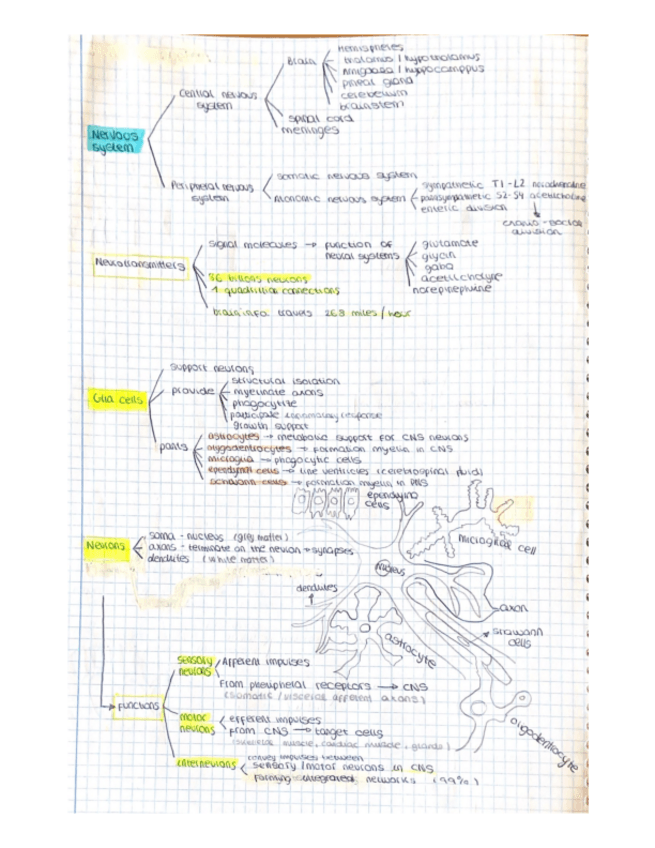 Nervous system
Central nervous system
Brain
hemispheres
thalamus / hypothalamus
Amigdala / hyppocamppus
pineal gland
cerebellum
brainstem
spinal cord
meninges
Peripheral nervous system
somatic nervous system
Autonomic nervous system
sympathetic T1-L2 noradrenaline
parasympathetic S2-S4 acetilcholine
enteric division
cranio-sacral division
Neurotransmitters
signal molecules → function of neural systems
glutamate
glycin
gaba
acetilcholyne
norepinephrine
86 billions neurons
1 quadrillion connections
brain info travels 268 miles / hour
Glia cells
support neurons
provide
structural isolation
myelinate axons
phagocytite
participate inflammatory response
growth support
parts
astrocytes → metabolic support for CNS neurons
olygodentrocytes → formation myelin in CNS
microglia → phagocytic cells
ependymil cells → line ventricles (cerebrospinal fluid)
schwann cells → formation myelin in PNS
ependying cells
microglical cell
Neurons
soma - nucleus (grey matter)
axons - terminate on the neuron → synapses
dendrites (white matter)
nucleus
dendrites
axon
schwann cells
astrocyte
oligodentriocyte
Functions
sensory neurons
Afferent impulses
From peripheral receptors → CNS
(somatic / visceral afferent axons)
motor neurons
efferent impulses
From CNS → target cells
(skeletal muscle, cardiac muscle, glands)
interneurons
convey impulses between
sensory / motor neurons in CNS
Forming integrated networks (99%)